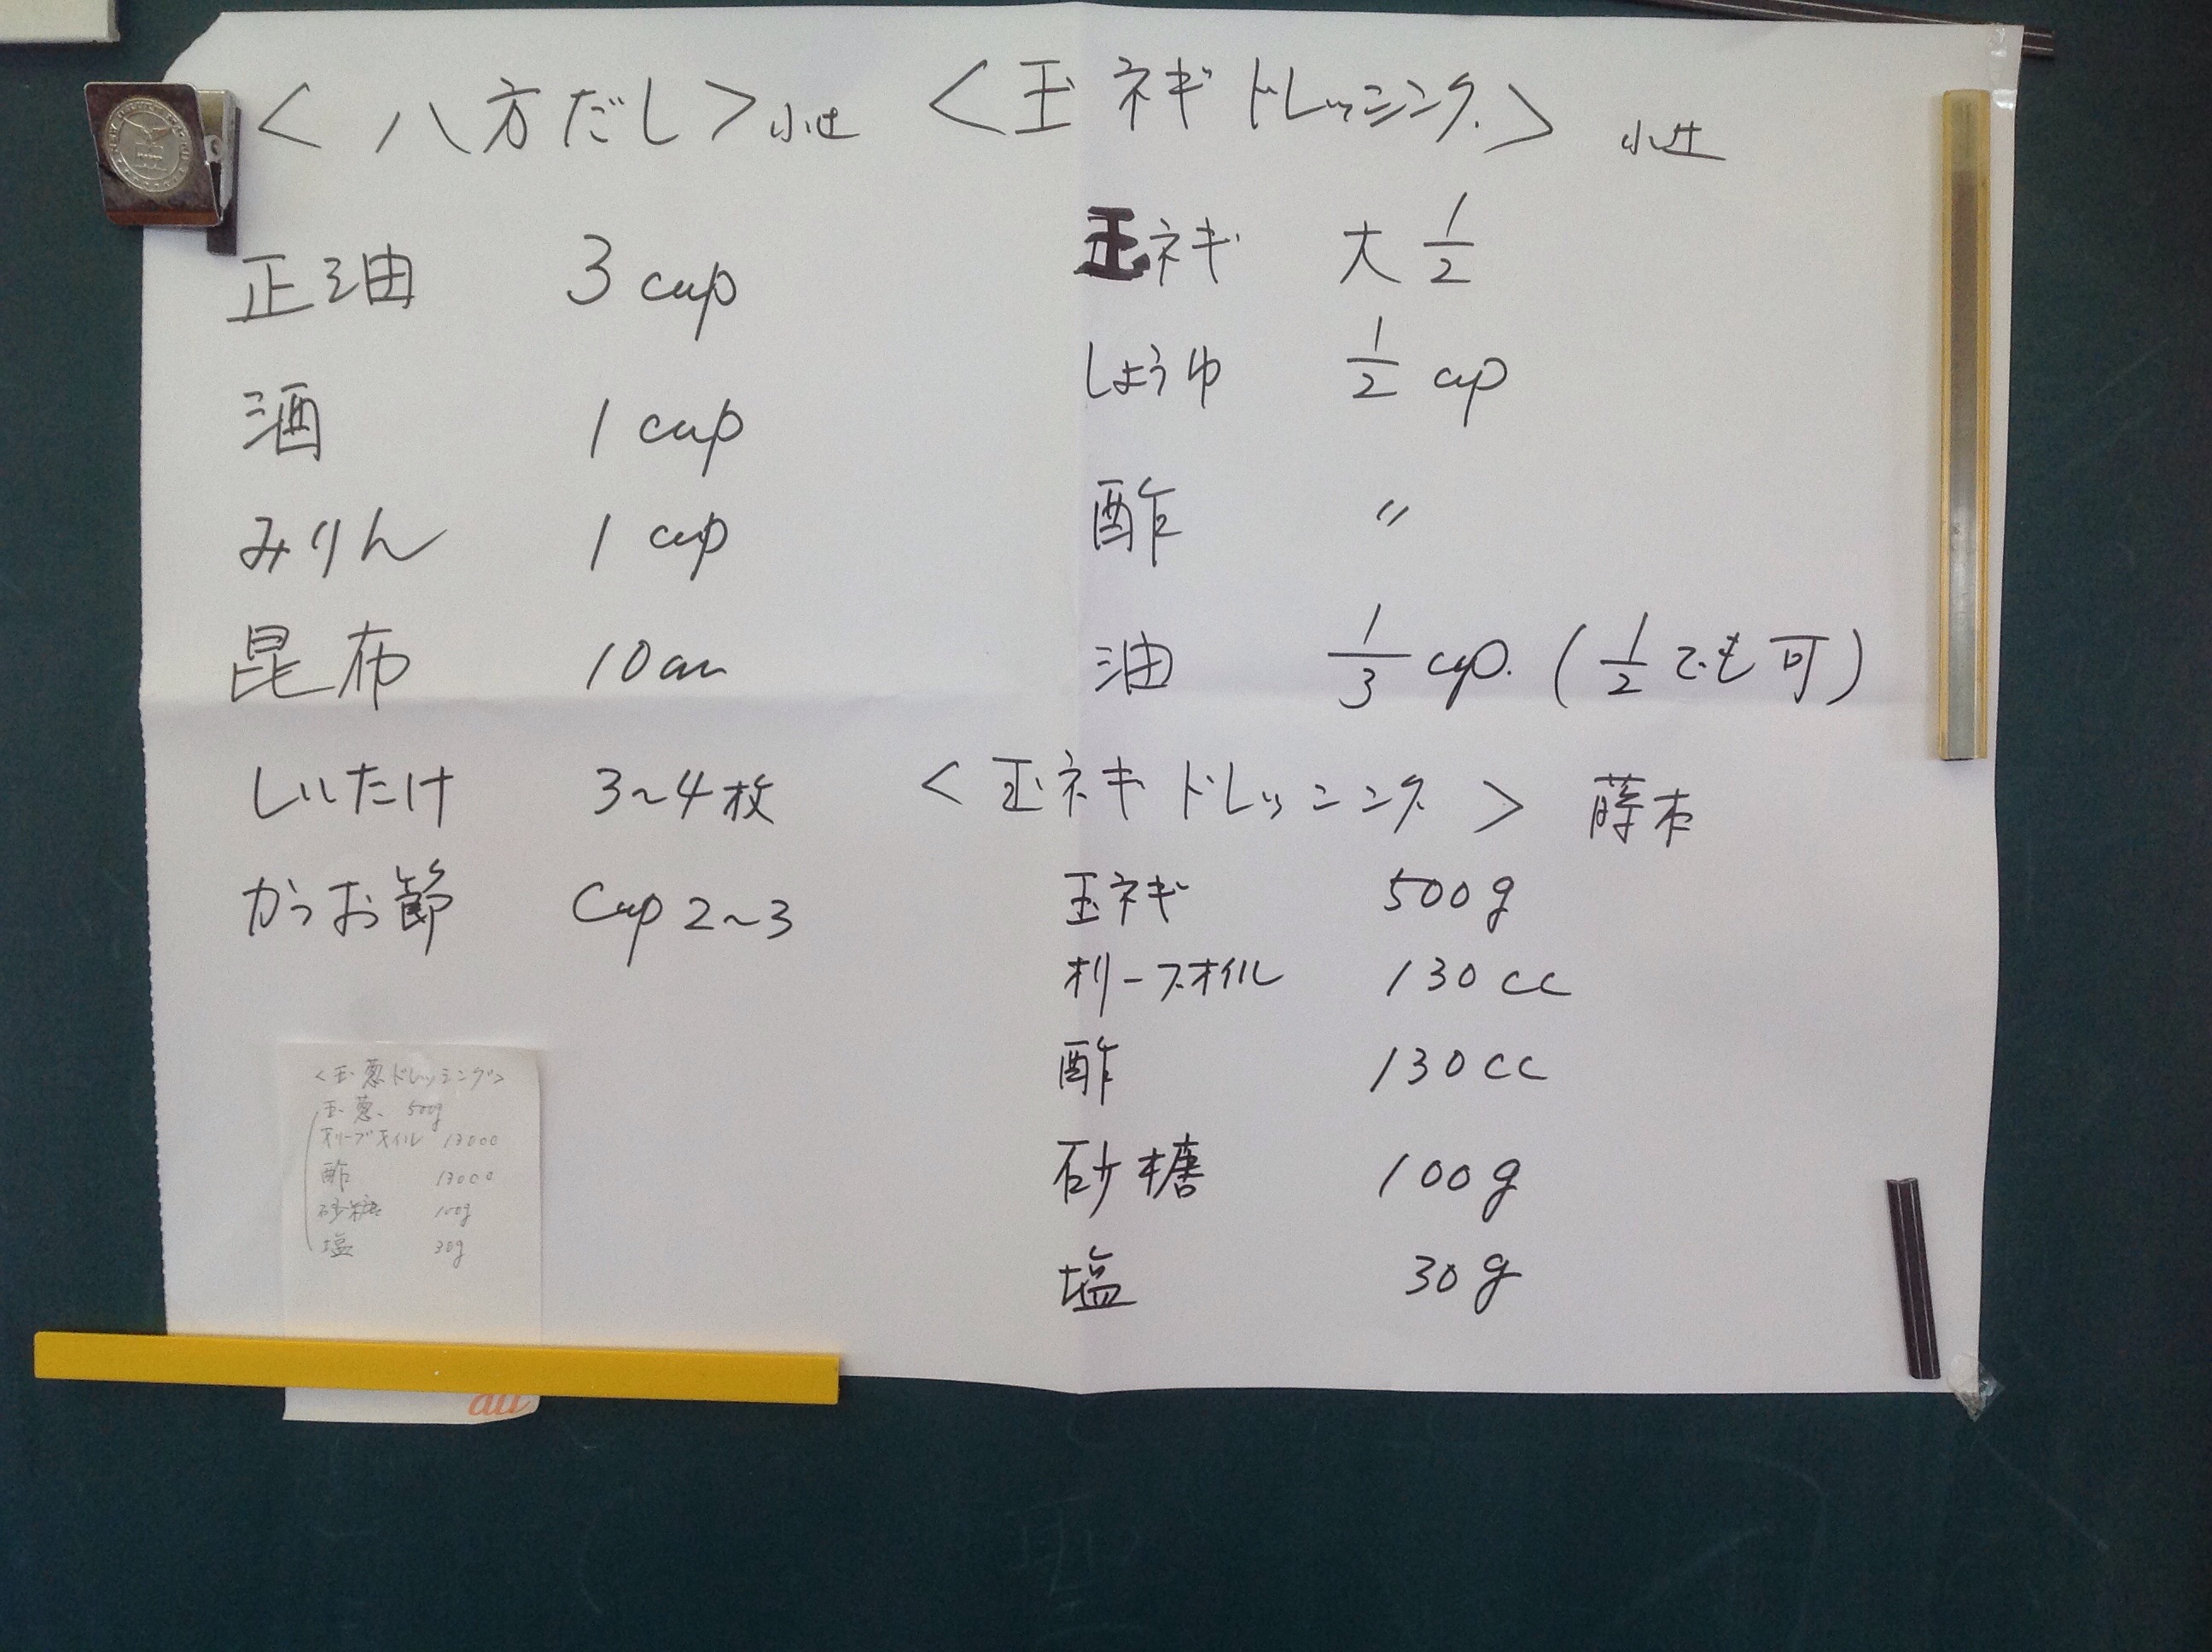 <八方だし>小辻
正油 3 cup
酒 1 cup
みりん 1 cup
昆布 10cm
しいたけ 3~4枚
かつお節 Cup 2~3
<玉ネギドレッシング> 小辻
玉ネギ 大 1/2
しょうゆ 1/2 cup
酢 〃
油 1/3 cup. (1/2でも可)
<玉ネギドレッシング> 藤本
玉ネギ 500g
オリーブオイル 130cc
酢 130cc
砂糖 100g
塩 30g
<玉葱ドレッシング>
玉葱 500g
オリーブオイル 130cc
酢 130cc
砂糖 100g
塩 30g
au